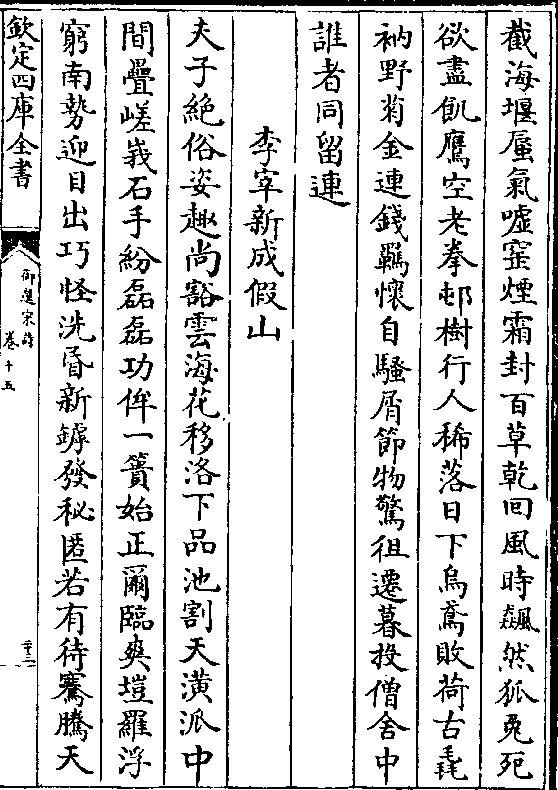 截海堰蜃氣噓窑煙霜封百草乾回風時飊然狐兎死
欲盡飢鷹空老拳邨樹行人稀落日下烏鳶敗荷古毳
衲野菊金連錢羈懷自騷屑節物驚徂遷暮投僧舍中
誰者同留連
李宰新成假山
夫子絶俗姿趣尚豁雲海花移洛下品池割天潢派中
間疊嵯峩石手紛磊磊功侔一簣始正爾臨爽塏羅浮
窮南勢迎目出巧怪洗昏新罅發秘匿若有待騫騰天
欽定四庫全書
御選宋詩
卷十五
二十三